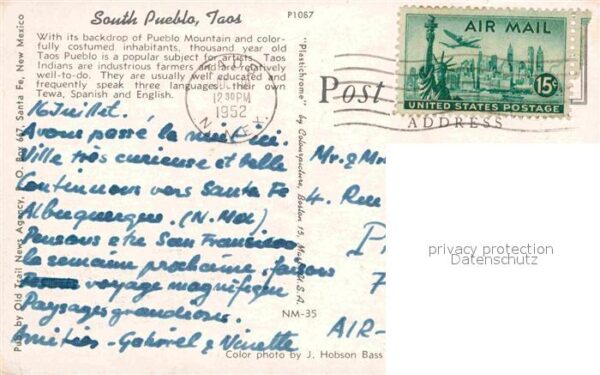 South Pueblo, Taos
P1087
With its backdrop of Pueblo Mountain and color-
fully costumed inhabitants, thousand year old
Taos Pueblo is a popular subject for artists. Taos
Indians are industrious farmers and are relatively
well-to-do. They are usually well educated and
frequently speak three languages, their own
Tewa, Spanish and English.
12 30 PM
1952
N. MEX.
AIR MAIL
15¢
UNITED STATES POSTAGE
Post
ADDRESS
16 Juillet.
Avons passé la nuit ici.
Ville très curieuse et belle
Continuons vers Santa Fe
Albuquerque. (N. Mex)
Pensons être San Francisco
la semaine prochaine, faisons
voyage magnifique
Paysages grandioses.
Amitiés - Gabriel & Ninette
Mr. & Mr
4. Rue
P
7
AIR-
privacy protection
Datenschutz
NM-35
Color photo by J. Hobson Bass
Pub. by Old Trail News Agency, P. O. Box 647, Santa Fe, New Mexico
"Plastichrome" by Colourpicture, Boston 15, Mass., U.S.A.